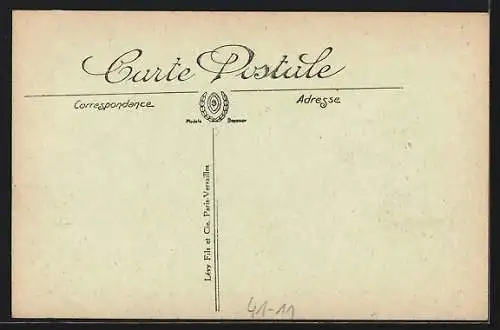 Carte Postale
Correspondance
Adresse
Modèle Déposé
Lévy Fils et Cie, Paris-Versailles
41-11